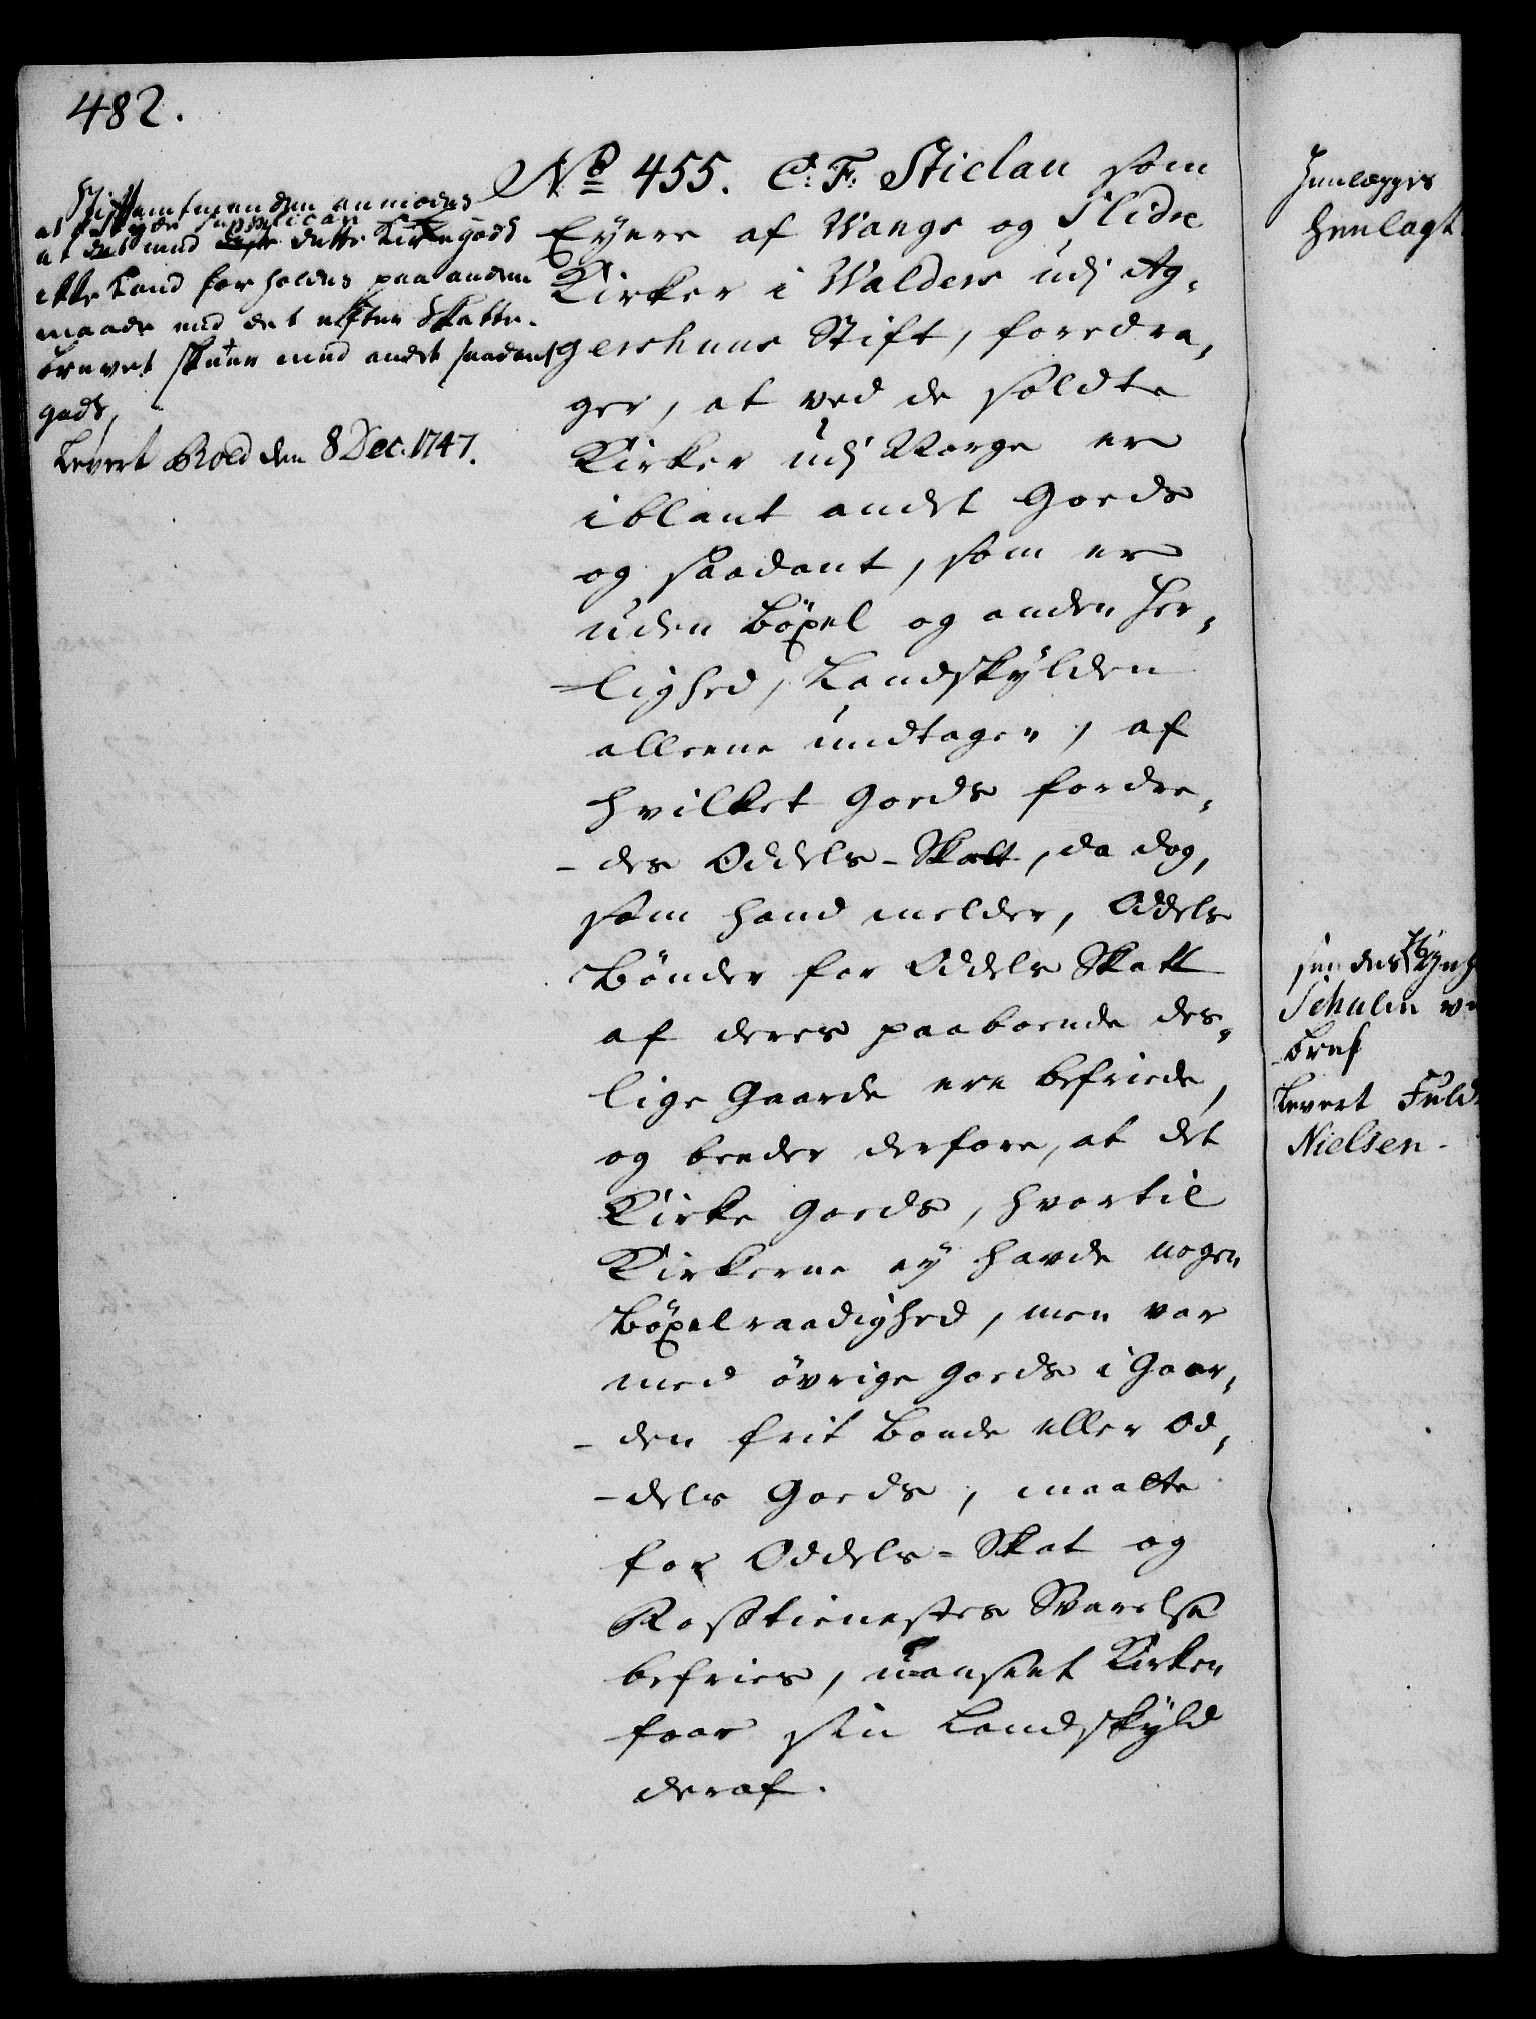 482.
Stiftamtmanden anmodes
at betyde Supplican
at det med dette Kirkegods
ikke kand forholdes paa anden
maade end det efter Skatte-
brevet skeer med andet saadant
gods,
Levert Rold den 8 Dec. 1747.
No 455. C: F: Sticlau som
Eyere af Wangs og Slidre
Kirker i Walders udj Ag-
gershuus Stift, foredra-
ger, at ved de soldte
Kirker udj Norge er
iblant andet Goeds
og saadant, som er
uden Böxel og anden Her-
lighed, Landskylden
alleene undtagen, af
hvilket Goeds fordre-
des Oddels-Skatt, da dog,
som hand melder, Oddels
Bönder for Oddels Skatt
af deres paaboende des-
lige Gaarde ere befriede,
og beeder derfore, at det
Kirke Goeds, hvortil
Kirkerne ey havde nogen
Böxelraadighed, men var
med övrige Goeds i Gaar-
den frit Bonde eller Od-
dels Goeds, maatte
for Oddels-Skat og
Rosstienestes Svarelse
befries, uanseet Kirken
faar sin Landskyld
deraf.
Henlægges
Henlagt
sendes
Schulin
bref
Levert
Nielsen